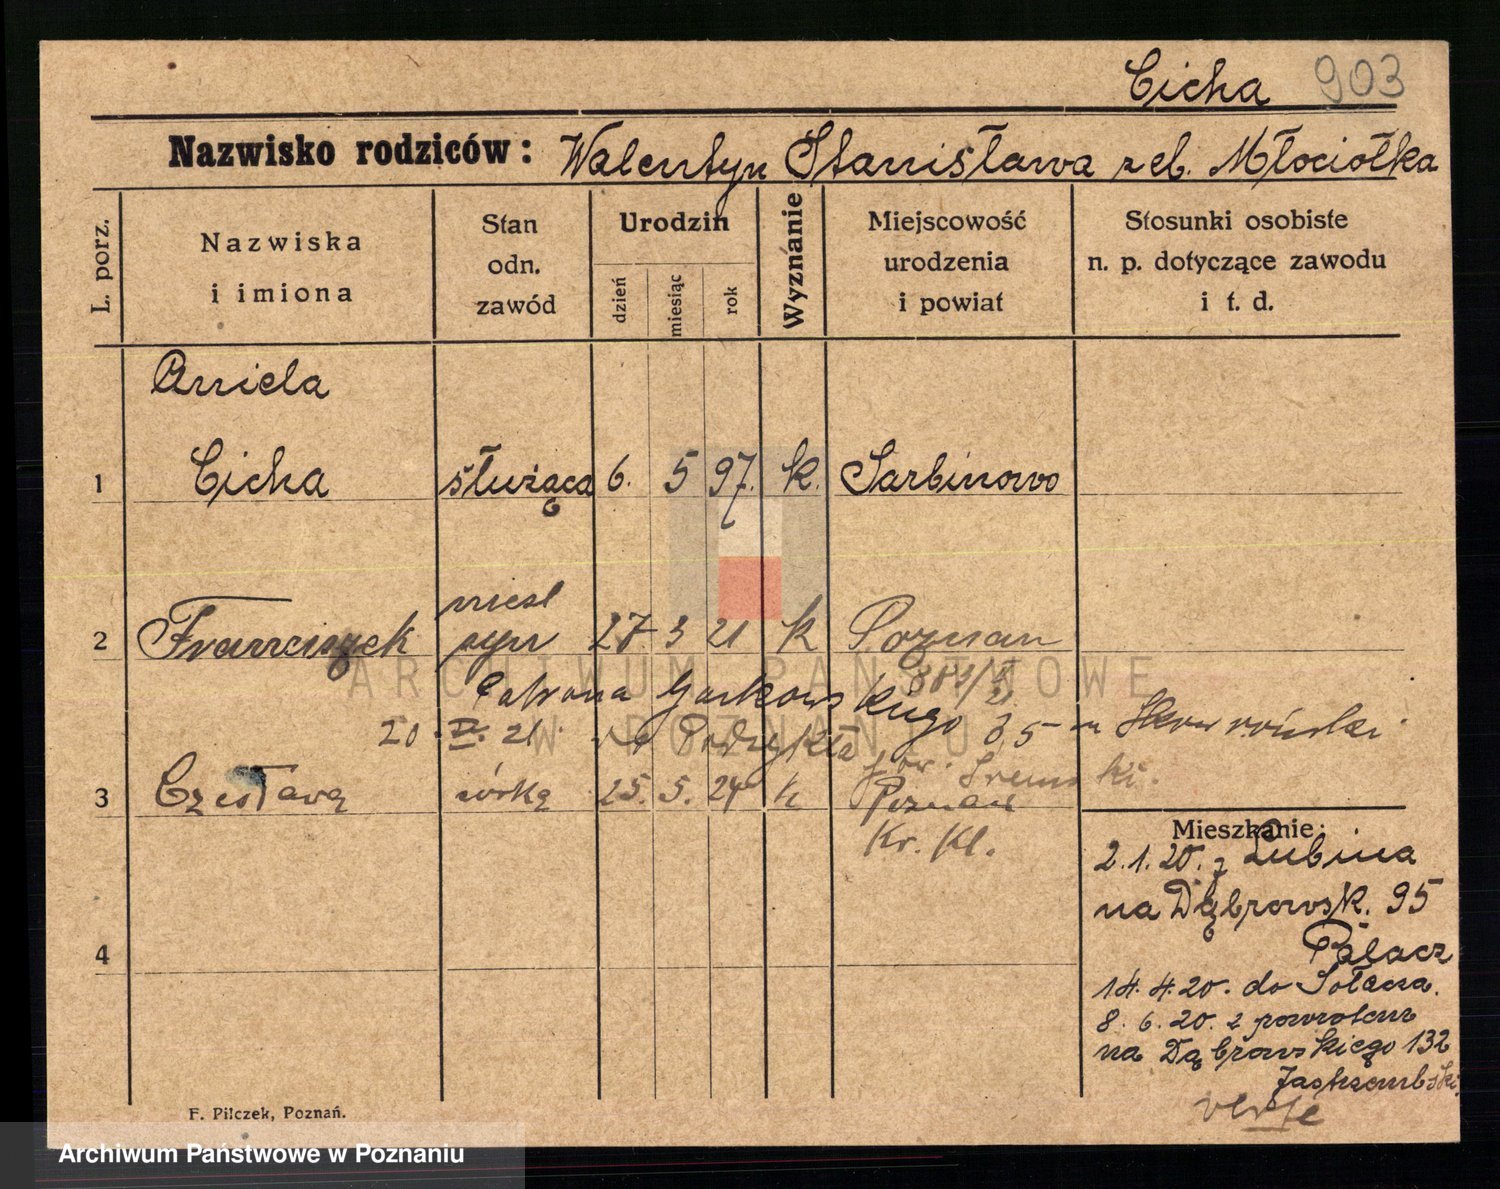 Cicha 903
Nazwisko rodziców: Walentyn Stanisława zeb. Młociołka
L. porz.
Nazwiska i imiona
Stan odn. zawód
Urodzin
dzień miesiąc rok
Wyznanie
Miejscowość urodzenia i powiat
Stosunki osobiste n. p. dotyczące zawodu i t. d.
Aniela
1 Cicha służąca 6. 5 97. k. Sarbinowo
nieśl
2 Franciszek syn 27 3 21 k Poznan
Patrona Jackowskiego 35
20 IV. 21.
pow. Sremski.
3 Czesława córka 25. 5. 24 k Poznań
Kr. Kl.
Mieszkanie:
2.1.20. z Lubina
na Dąbrowsk. 95
Palacz
4
14.4.20. do Sołacza.
8.6.20. z powrotem
na Dąbrowskiego 132
Jastrzembski
verte
F. Pilczek, Poznań.
ARCHIWUM PAŃSTWOWE
W POZNANIU
Archiwum Państwowe w Poznaniu